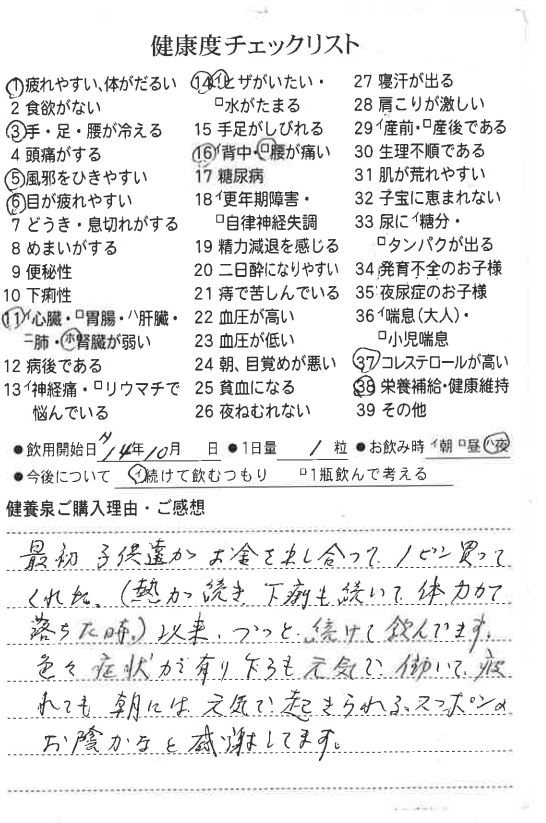 健康度チェックリスト
1 疲れやすい、体がだるい
2 食欲がない
3 手・足・腰が冷える
4 頭痛がする
5 風邪をひきやすい
6 目が疲れやすい
7 どうき・息切れがする
8 めまいがする
9 便秘性
10 下痢性
11 イ心臓・ロ胃腸・ハ肝臓・
ニ肺・ホ腎臓が弱い
12 病後である
13 イ神経痛・ロリウマチで
悩んでいる
14 イヒザがいたい・
ロ水がたまる
15 手足がしびれる
16 イ背中・ロ腰が痛い
17 糖尿病
18 イ更年期障害・
ロ自律神経失調
19 精力減退を感じる
20 二日酔になりやすい
21 痔で苦しんでいる
22 血圧が高い
23 血圧が低い
24 朝、目覚めが悪い
25 貧血になる
26 夜ねむれない
27 寝汗が出る
28 肩こりが激しい
29 イ産前・ロ産後である
30 生理不順である
31 肌が荒れやすい
32 子宝に恵まれない
33 尿にイ糖分・
ロタンパクが出る
34 発育不全のお子様
35 夜尿症のお子様
36 イ喘息(大人)・
ロ小児喘息
37 コレステロールが高い
38 栄養補給・健康維持
39 その他
●飲用開始日 H14年10月 日 ●1日量 1 粒 ●お飲み時 イ朝 ロ昼 ハ夜
●今後について イ続けて飲むつもり ロ1瓶飲んで考える
健養泉ご購入理由・ご感想
最初 子供達が お金を出し合って 1ビン買って
くれた。(熱が続き 下痢も続いて 体力がて
落ちた時。)以来、ずっと 続けて飲んでます。
色々 症状が有り乍らも 元気で 働いて、疲
れても 朝には 元気で 起きられる、スッポンの
お陰かなと 感謝してます。